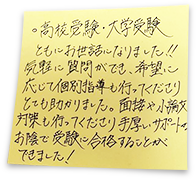 ○高校受験・大学受験
ともにお世話になりました!!
気軽に質問ができ、希望に
応じて個別指導も行ってくださり
とても助かりました。面接や小論文
対策も行ってくださり手厚いサポートの
お陰で受験に合格することが
できました!